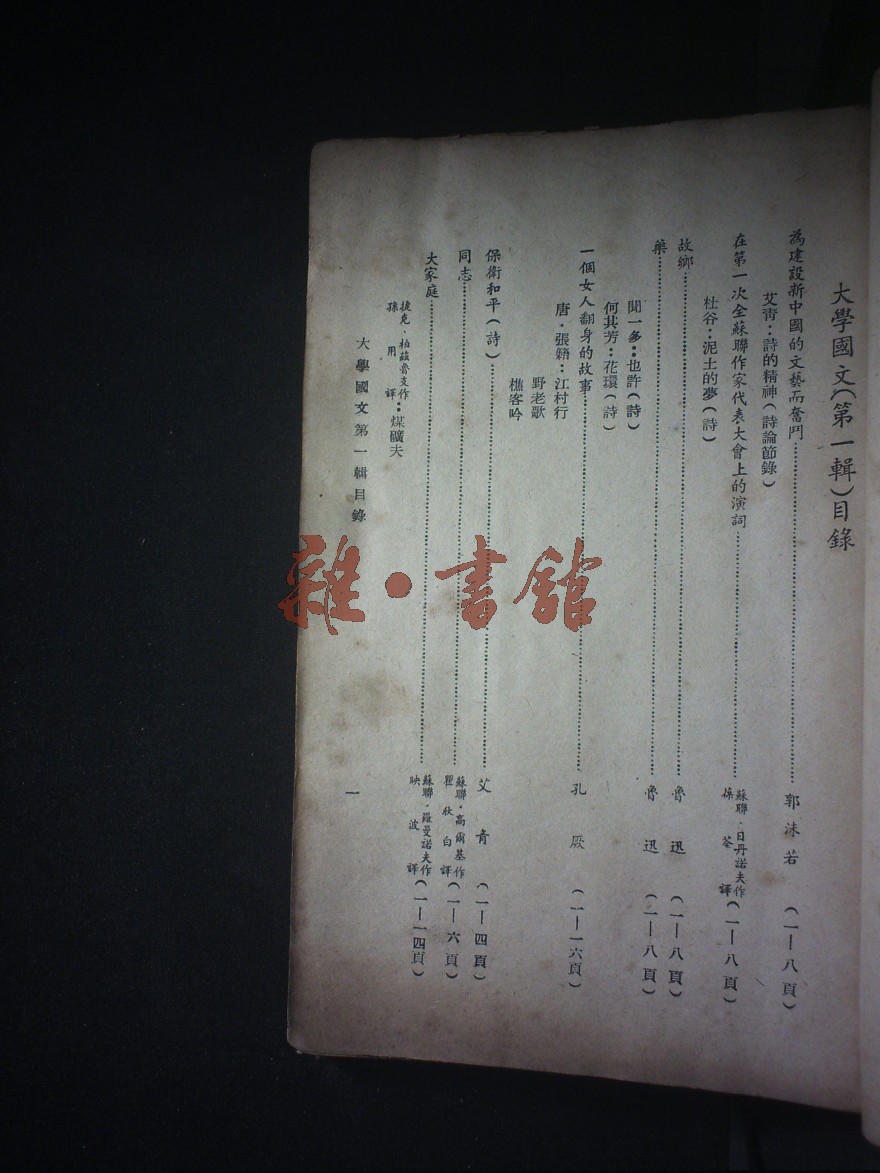 大學國文(第一輯)目錄
為建設新中國的文藝而奮鬥……郭沫若(一—八頁)
艾青:詩的精神(詩論節錄)
在第一次全蘇聯作家代表大會上的演詞……蘇聯·日丹諾夫作 葆荃譯(一—八頁)
杜谷:泥土的夢(詩)
故鄉……魯迅(一—八頁)
藥……魯迅(一—八頁)
聞一多:也許(詩)
何其芳:花環(詩)
一個女人翻身的故事……孔厥(一—一六頁)
唐·張籍:江村行
野老歌
樵客吟
保衛和平(詩)……艾青(一—四頁)
同志……蘇聯·高爾基作 瞿秋白譯(一—六頁)
大家庭……蘇聯·羅曼諾夫作 映波譯(一—一四頁)
捷克·柏茲魯支作 孫用譯:煤礦夫
大學國文第一輯目錄
一
雜·書館